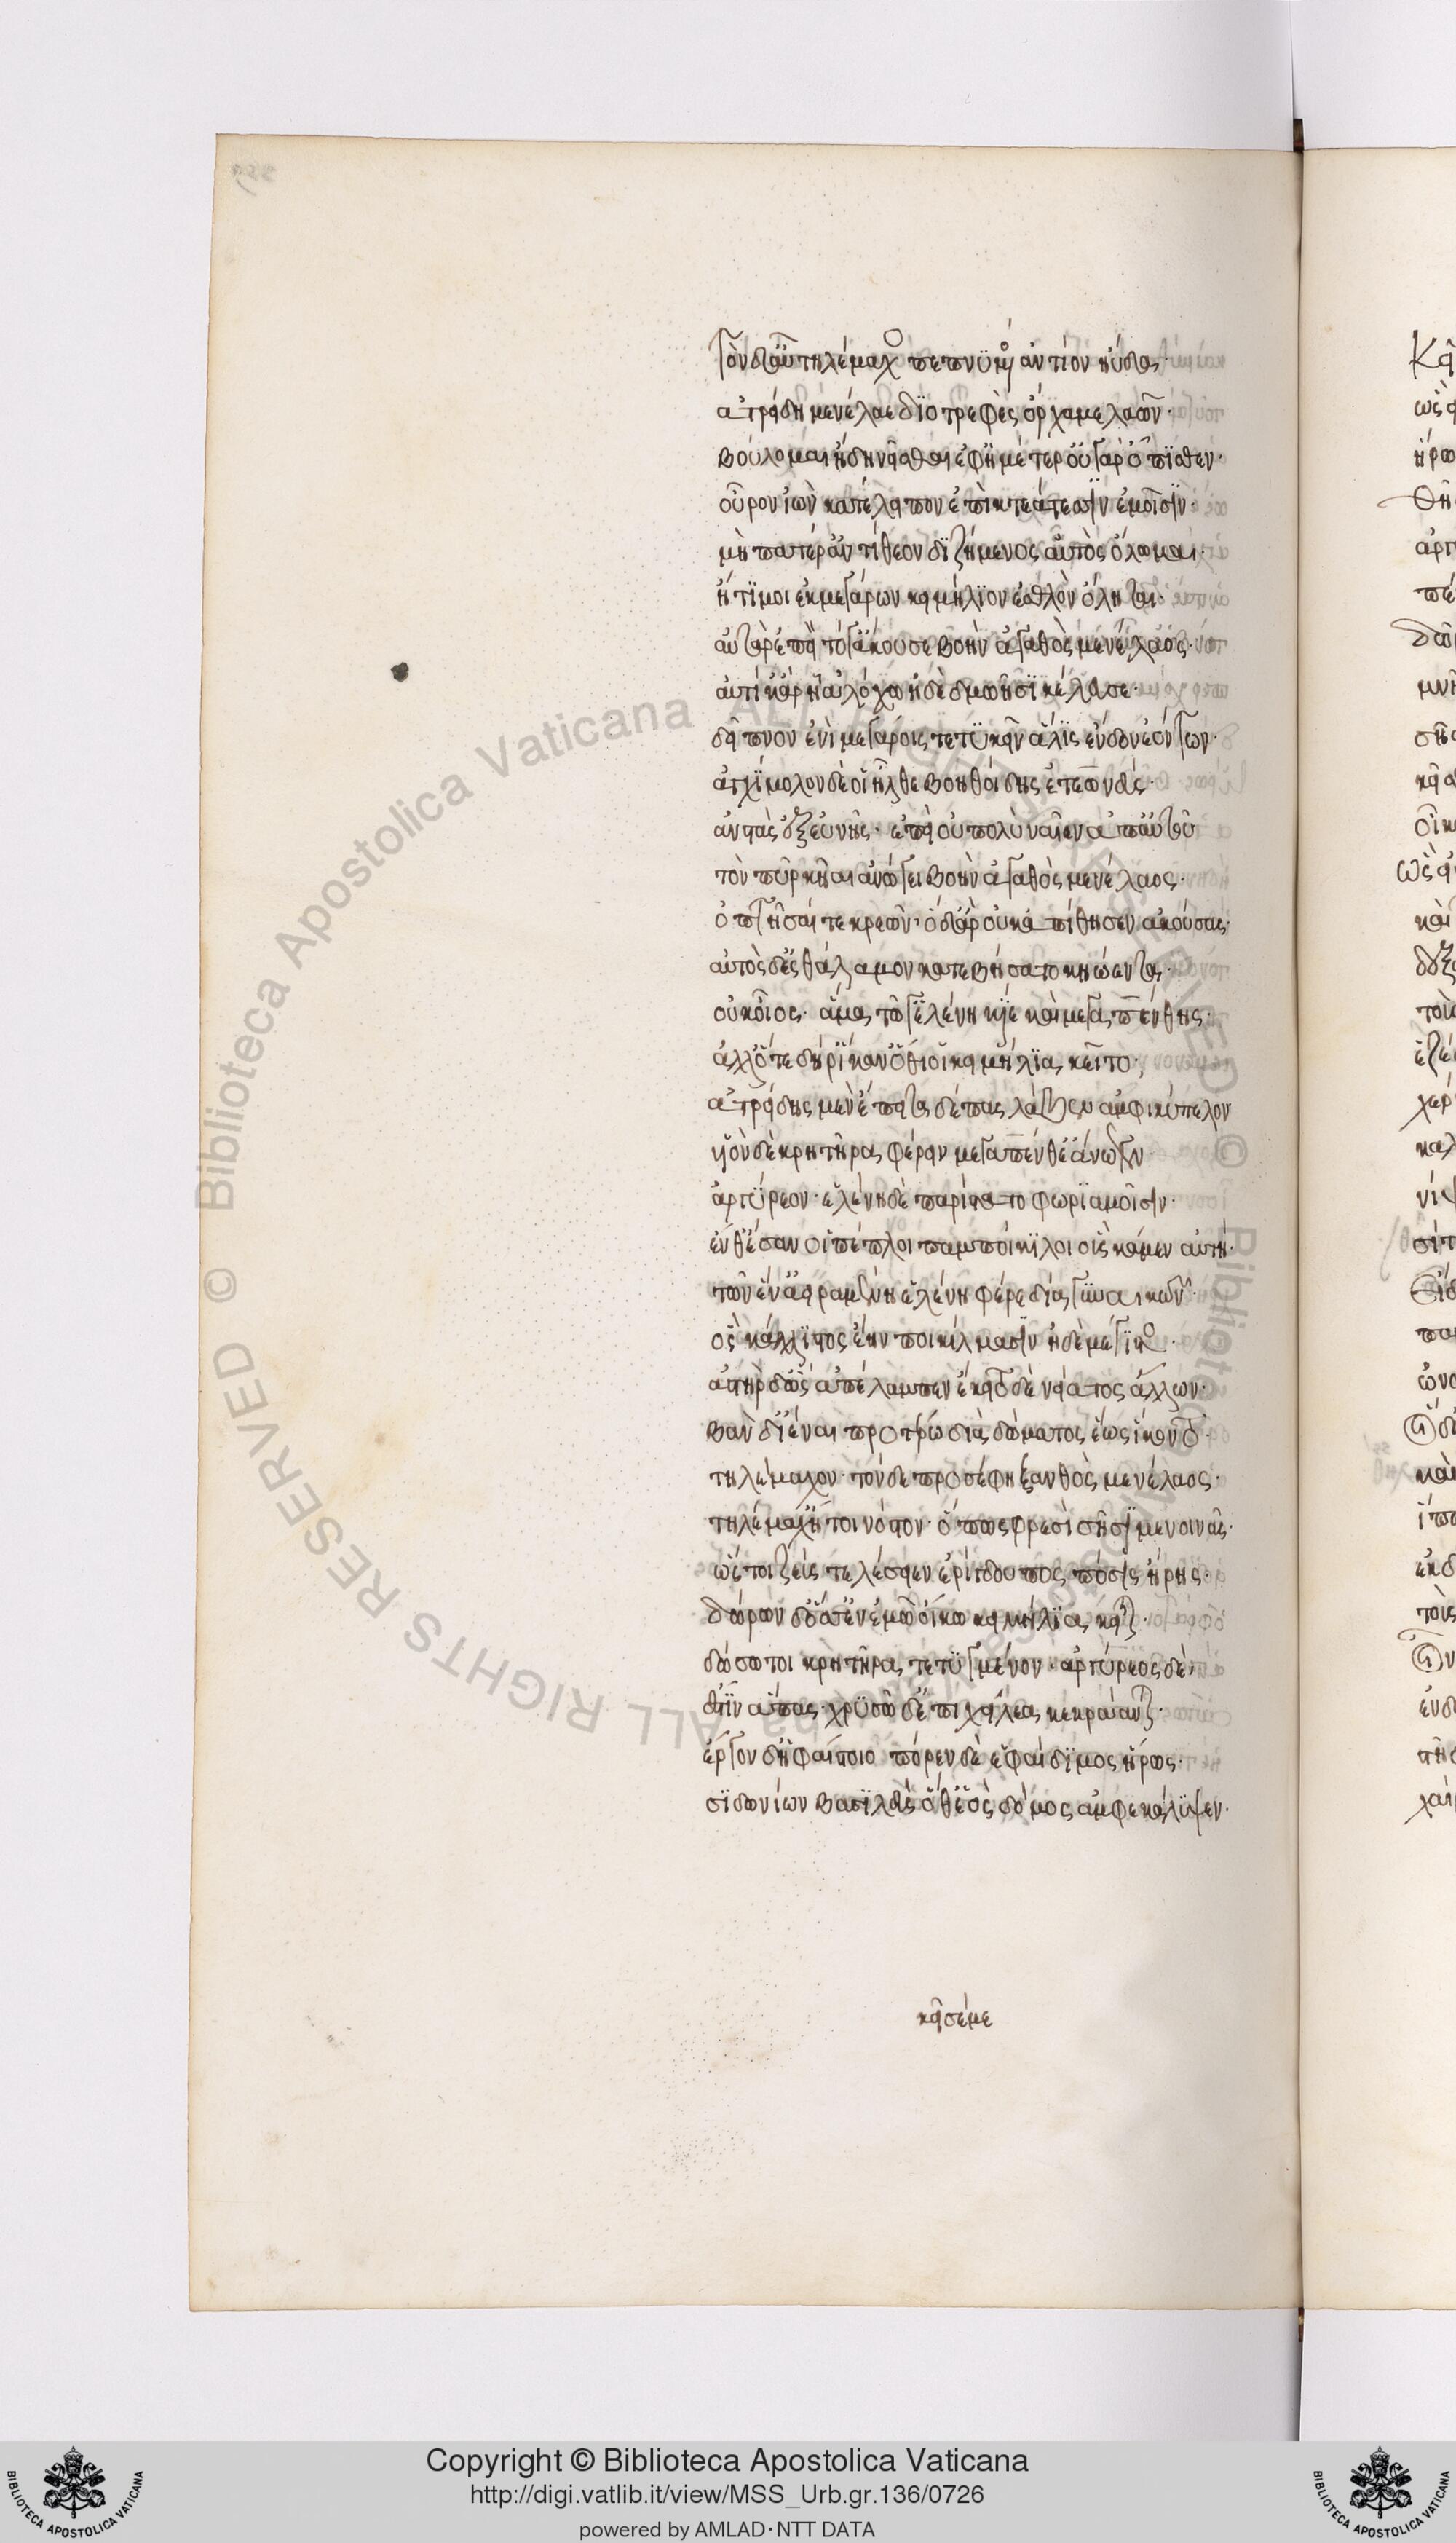 Τὸν δ' αὖ τηλέμαχος πεπνυμένος ἀντίον ηὔδα·
ἀτρείδη μενέλαε διοτρεφὲς ὄρχαμε λαῶν·
βούλομαι ἤδη νεῖσθαι ἐφ' ἡμέτερ' οὐ γὰρ ὄπισθεν·
οὖρον ἰὼν κατέλειπον ἐπὶ κτεάτεσσιν ἐμοῖσιν·
μὴ πατέρ' ἀντίθεον διζήμενος αὐτὸς ὄλωμαι·
ἤ τί μοι ἐκ μεγάρων κειμήλιον ἐσθλὸν ὄληται·
αὐτὰρ ἐπεὶ τόγ' ἄκουσε βοὴν ἀγαθὸς μενέλαος·
αὐτίκ' ἄρ' ᾗ ἀλόχω ἠδὲ δμωῆσι κέλευσε·
δεῖπνον ἐνὶ μεγάροις τετυκεῖν ἅλις ἔνδον ἐόντων·
ἀγχίμολον δέ οἱ ἦλθε βοηθοίδης ἐτεωνεύς·
ἀνστὰς ἐξ εὐνῆς· ἐπεὶ οὐ πολὺ ναῖεν ἀπ' αὐτοῦ
τὸν πῦρ κῆαι ἀνώγει βοὴν ἀγαθὸς μενέλαος·
ὀπτῆσαί τε κρεῶν· ὁ δ' ἄρ' οὐκ ἀπίθησεν ἀκούσας·
αὐτὸς δ' ἐς θάλαμον κατεβήσατο κηώεντα·
οὐκ οἶος· ἅμα τῶγ' ἑλένη κίε καὶ μεγαπένθης·
ἀλλ' ὅτε δή ῥ' ἵκανον ὅθι οἱ κειμήλια κεῖτο·
ἀτρείδης μὲν ἔπειτα δέπας λάβεν ἀμφικύπελον
υἱὸν δὲ κρητῆρα φέρειν μεγαπένθε' ἄνωγεν
ἀργύρεον· ἑλένη δὲ παρίστατο φωριαμοῖσιν·
ἔνθ' ἔσαν οἱ πέπλοι παμποίκιλοι οὓς κάμεν αὐτή·
τῶν ἕν' ἀειραμένη ἑλένη φέρε δῖα γυναικῶν·
ὃς κάλλιστος ἔην ποικίλμασιν ἠδὲ μέγιστος·
ἀστὴρ δ' ὣς ἀπέλαμπεν ἔκειτο δὲ νείατος ἄλλων·
βὰν δ' ἰέναι προτέρω διὰ δώματος ἕως ἵκοντο·
τηλέμαχον· τὸν δὲ προσέφη ξανθὸς μενέλαος·
τηλέμαχ' ἤτοι νόστον· ὅπως φρεσὶ σῆσι μενοινᾶς·
ὥς τοι ζεὺς τελέσειεν ἐρίγδουπος πόσις ἥρης·
δώρων δ' ὅσσ' ἐν ἐμῶ οἴκω κειμήλια κεῖται·
δώσω τοι κρητῆρα τετυγμένον· ἀργύρεος δὲ,
ἐστὶν ἅπας· χρυσῶ δ' ἐπὶ χείλεα κεκράανται·
ἔργον δ' ἡφαίστοιο πόρεν δὲ ἑ φαίδιμος ἥρως·
σιδονίων βασιλεὺς ὅθ' ἑὸς δόμος ἀμφεκάλυψεν·
κεῖσέ με